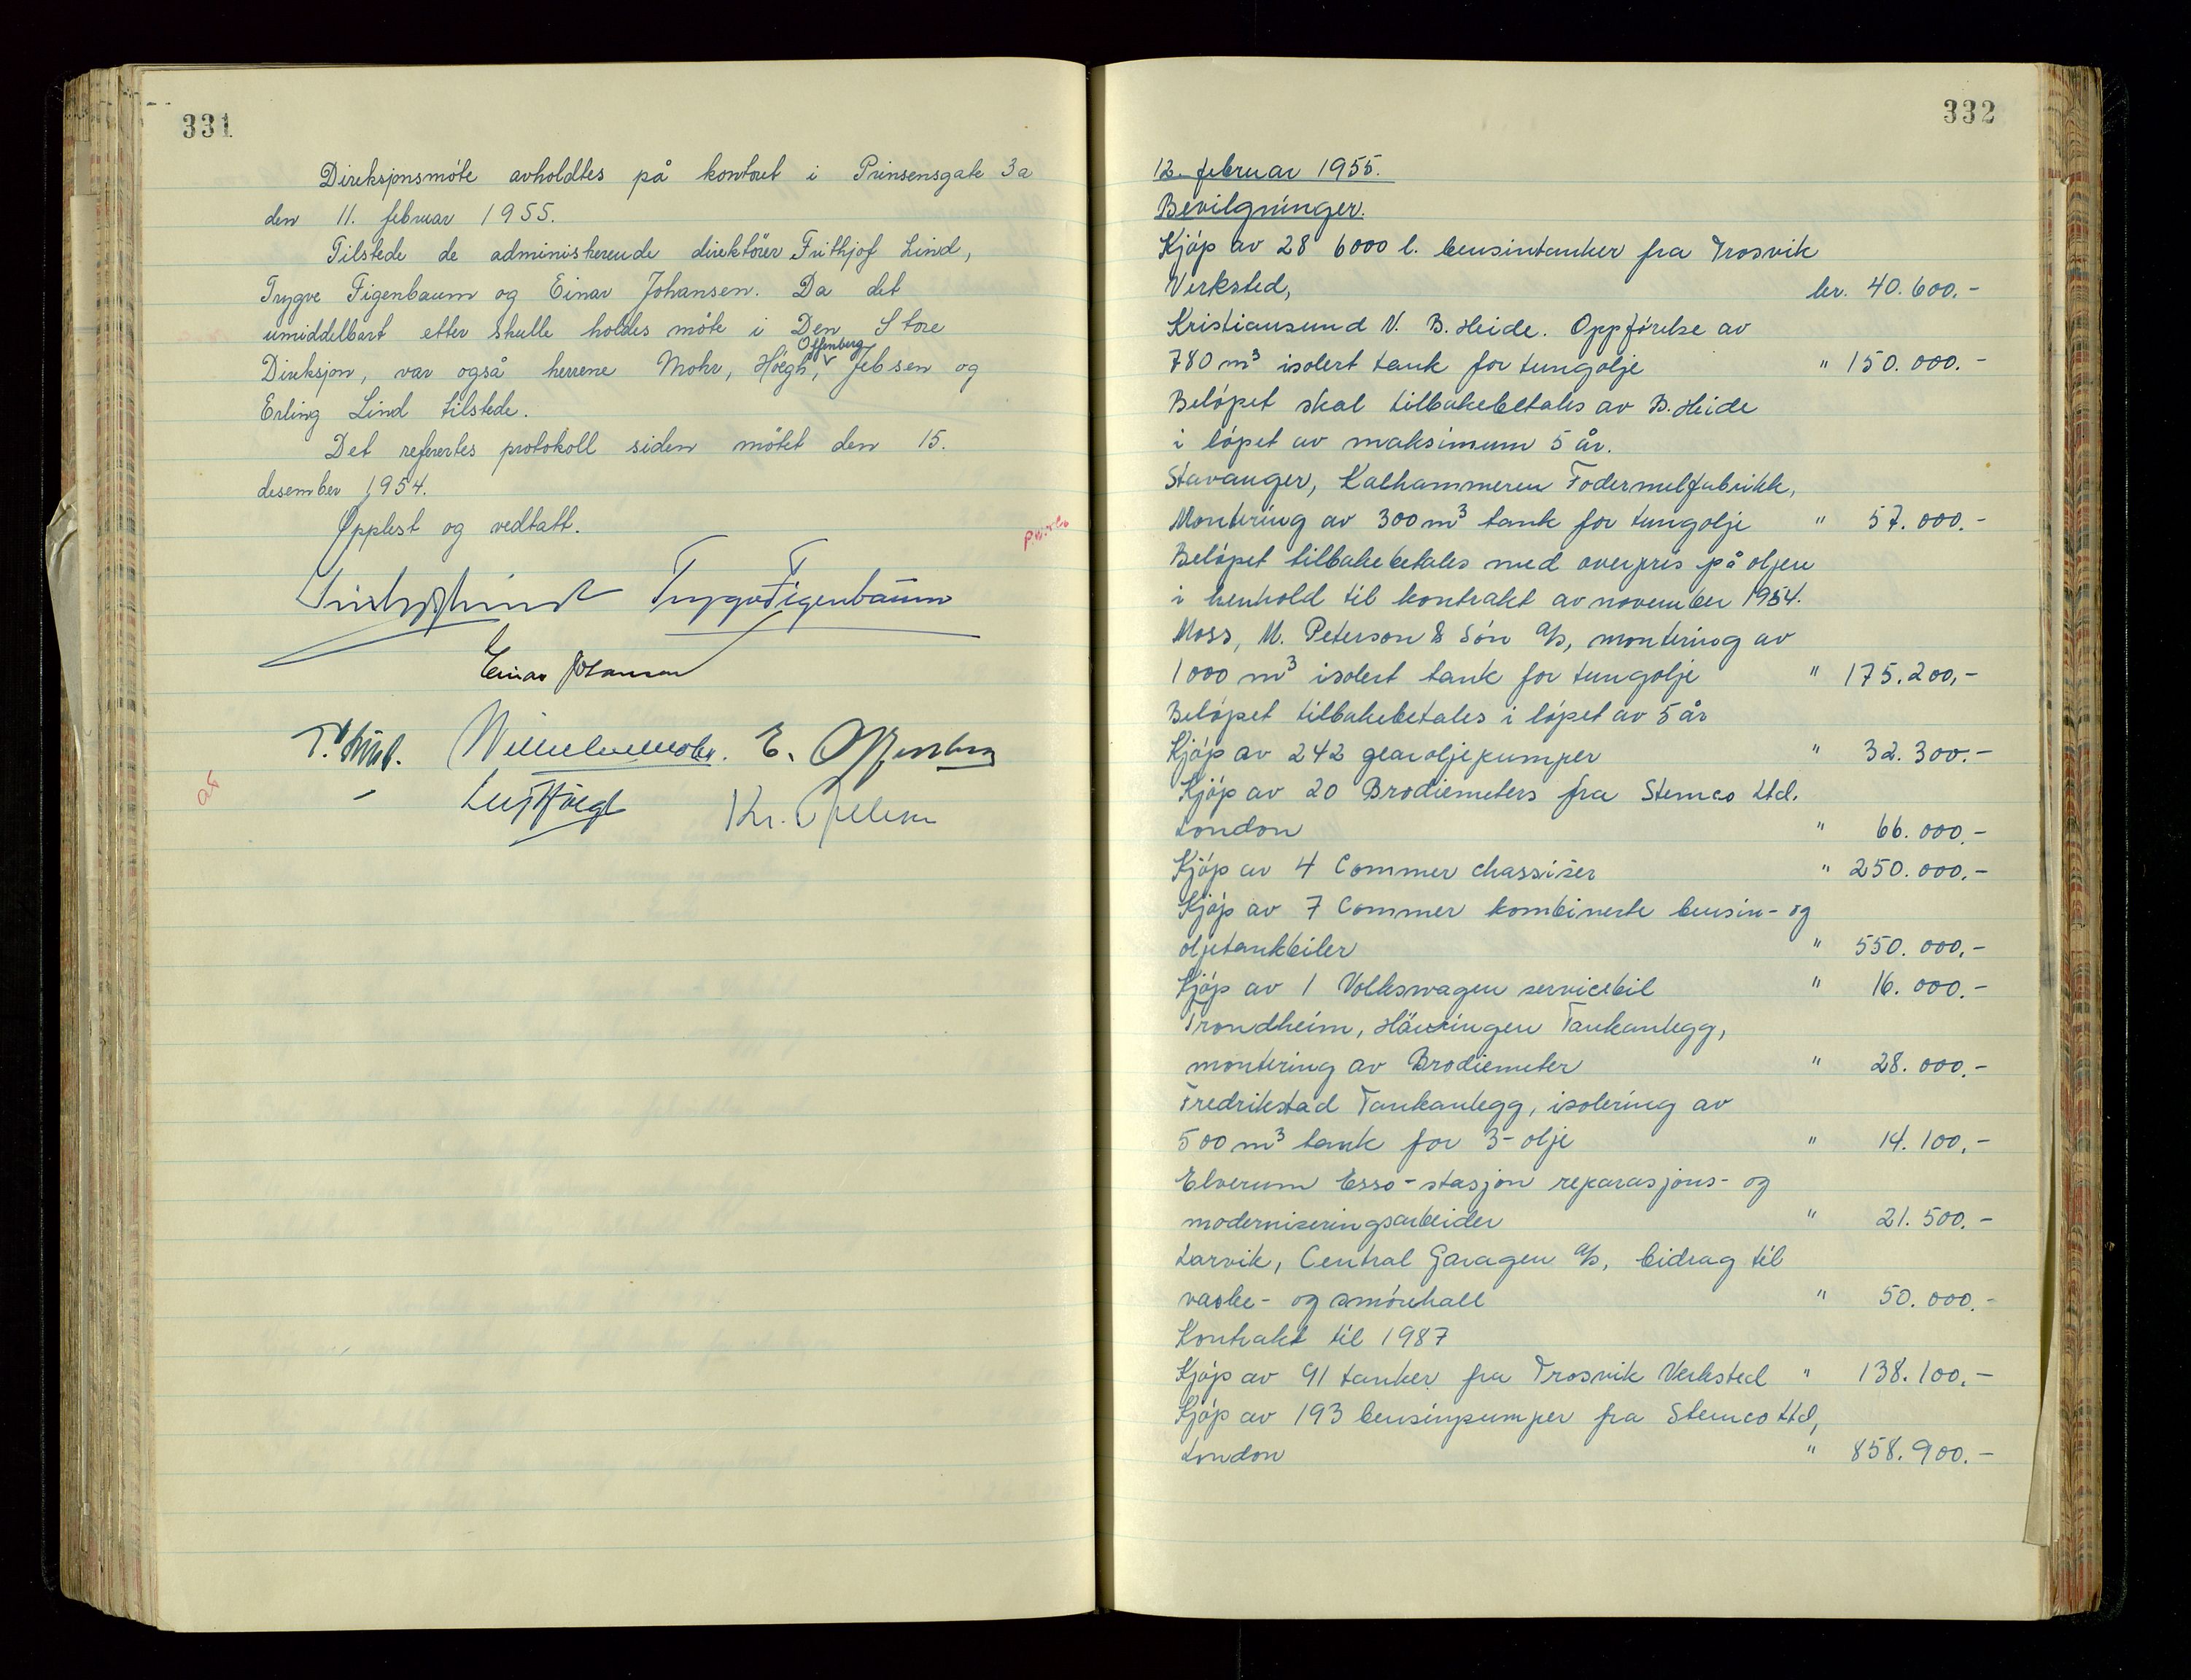 331
Direksjonsmöte avholdtes på kontoret i Prinsensgate 3a
den 11. februar 1955.
Tilstede de administrerende direktörer Frithjof Lind,
Trygve Figenbaum og Einar Johansen. Da det
umiddelbart etter skulle holdes möte i Den Store
Offenberg
Direksjon, var også herrene Mohr, Höegh, Jebsen og
Erling Lind tilstede.
Det refererte protokoll siden mötet den 15.
desember 1954.
Opplest og vedtatt.
Trygve Figenbaum
Einar Johansen
Wilhelm Mohr. E. Offenberg
Leif Höegh Kr. Jebsen
332
12. februar 1955.
Bevilgninger.
Kjöp av 28 6000 l. bensintanker fra Trosvik
Verksted, kr. 40.600.-
Kristiansund N. B. Heide. Oppförelse av
780 m³ isolert tank for tungolje " 150.000.-
Belöpet skal tilbakebetales av B. Heide
i löpet av maksimum 5 år.
Stavanger, Kalhammeren Fodermelfabrikk,
Montering av 300 m³ tank for tungolje " 57.000.-
Belöpet tilbakebetales med overpris på oljen
i henhold til kontrakt av november 1954.
Moss, M. Peterson & Sön A/S, montering av
1000 m³ isolert tank for tungolje " 175.200,-
Belöpet tilbakebetales i löpet av 5 år
Kjöp av 242 gearoljepumper " 32.300.-
Kjöp av 20 Brodiemeters fra Stemco Ltd.
London " 66.000.-
Kjöp av 4 Commer chassiser " 250.000.-
Kjöp av 7 Commer kombinerte bensin- og
oljetankbiler " 550.000.-
Kjöp av 1 Volkswagen servicebil " 16.000.-
Trondheim, Tankanlegg,
montering av Brodiemeter " 28.000.-
Fredrikstad Tankanlegg, isolering av
500 m³ tank for 3-olje " 14.100.-
Elverum Esso-stasjon reparasjons- og
moderniseringsarbeider " 21.500.-
Larvik, Central Garagen A/S, bidrag til
vaske- og smörehall " 50.000.-
Kontrakt til 1987
Kjöp av 91 tanker fra Trosvik Verksted " 138.100.-
Kjöp av 193 bensinpumper fra Stemco Ltd,
London " 858.900.-